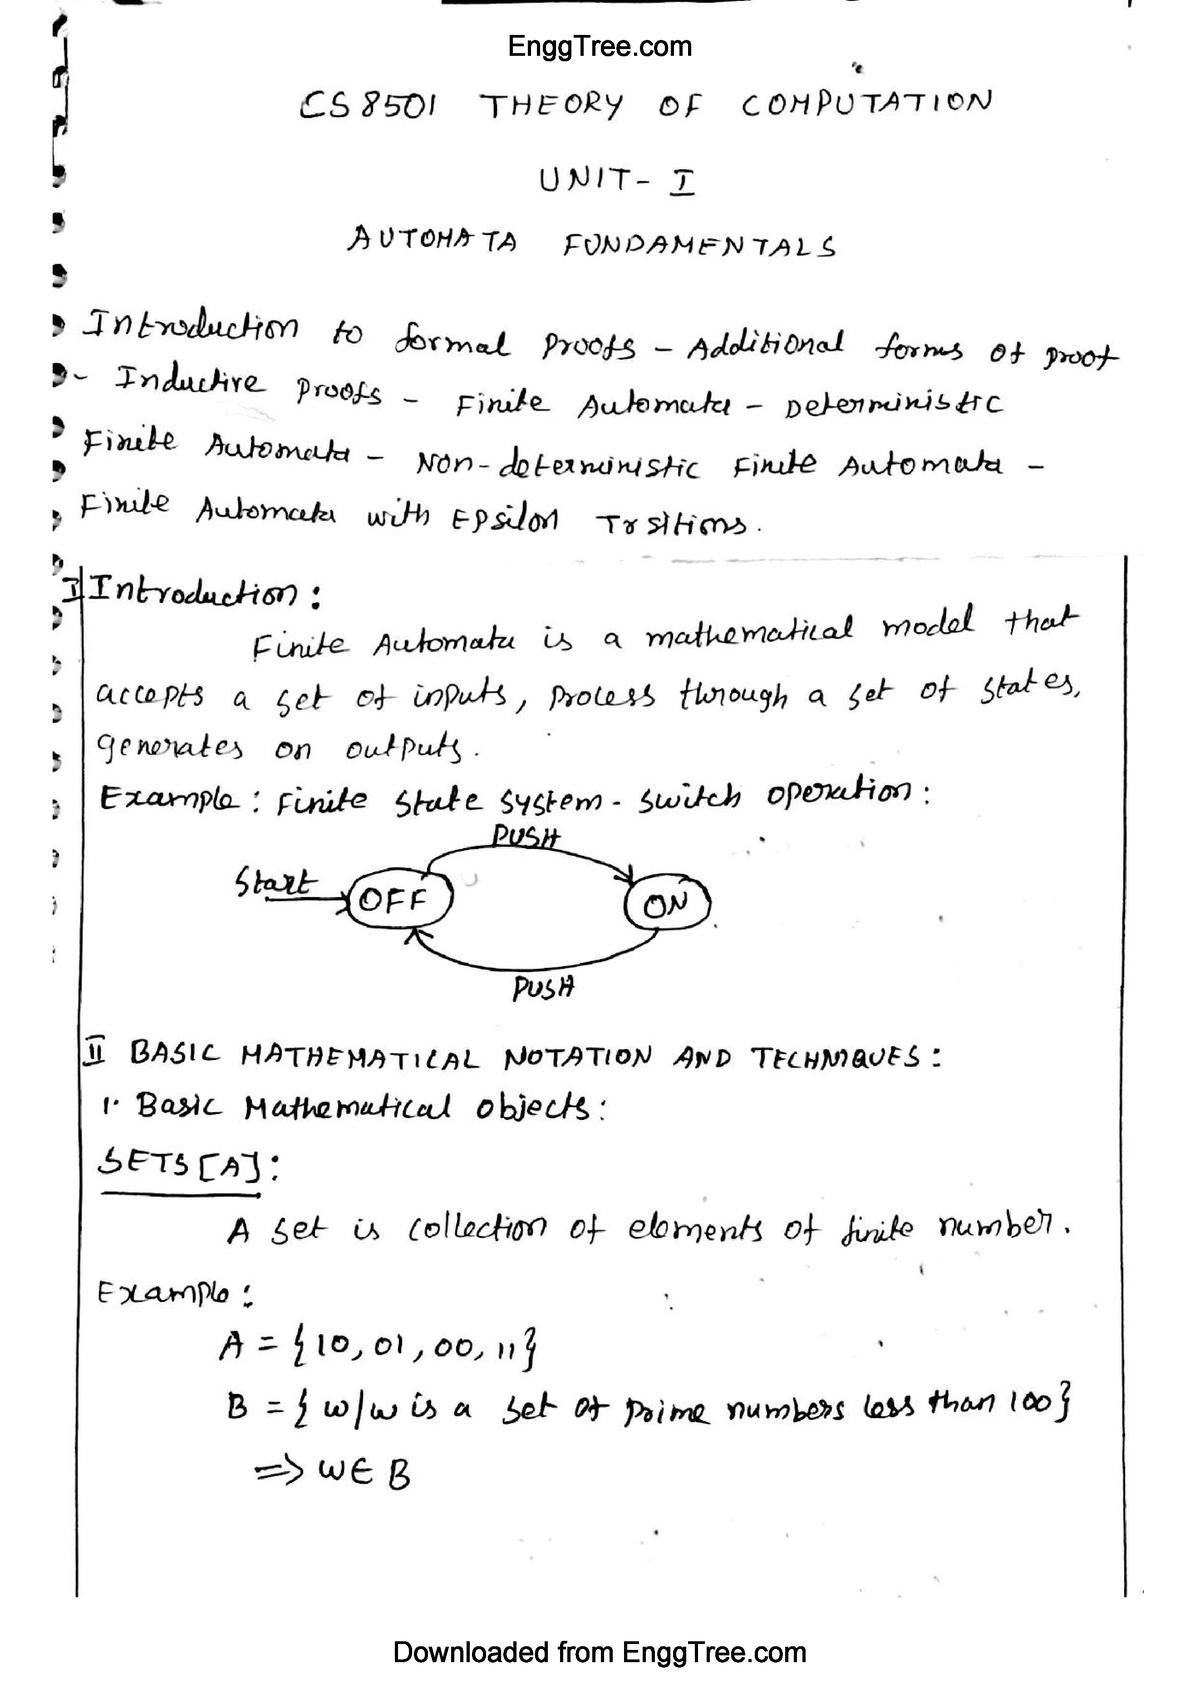 EnggTree.com
CS8501 THEORY OF COMPUTATION
UNIT- I
AUTOMATA FUNDAMENTALS
Introduction to formal proofs - Additional forms of proof
- Inductive proofs - Finite Automata - Deterministic
Finite Automata - Non-deterministic Finite Automata -
Finite Automata with Epsilon Trsitions.
I Introduction:
Finite Automata is a mathematical model that
accepts a set of inputs, process through a set of states,
generates on outputs.
Example: Finite State System - Switch operation:
PUSH
Start
OFF
ON
PUSH
II BASIC MATHEMATICAL NOTATION AND TECHNIQUES:
1. Basic Mathematical objects:
SETS[A]:
A set is collection of elements of finite number.
Example:
A = {10, 01, 00, 11}
B = {w/w is a set of prime numbers less than 100}
=> w∈B
Downloaded from EnggTree.com